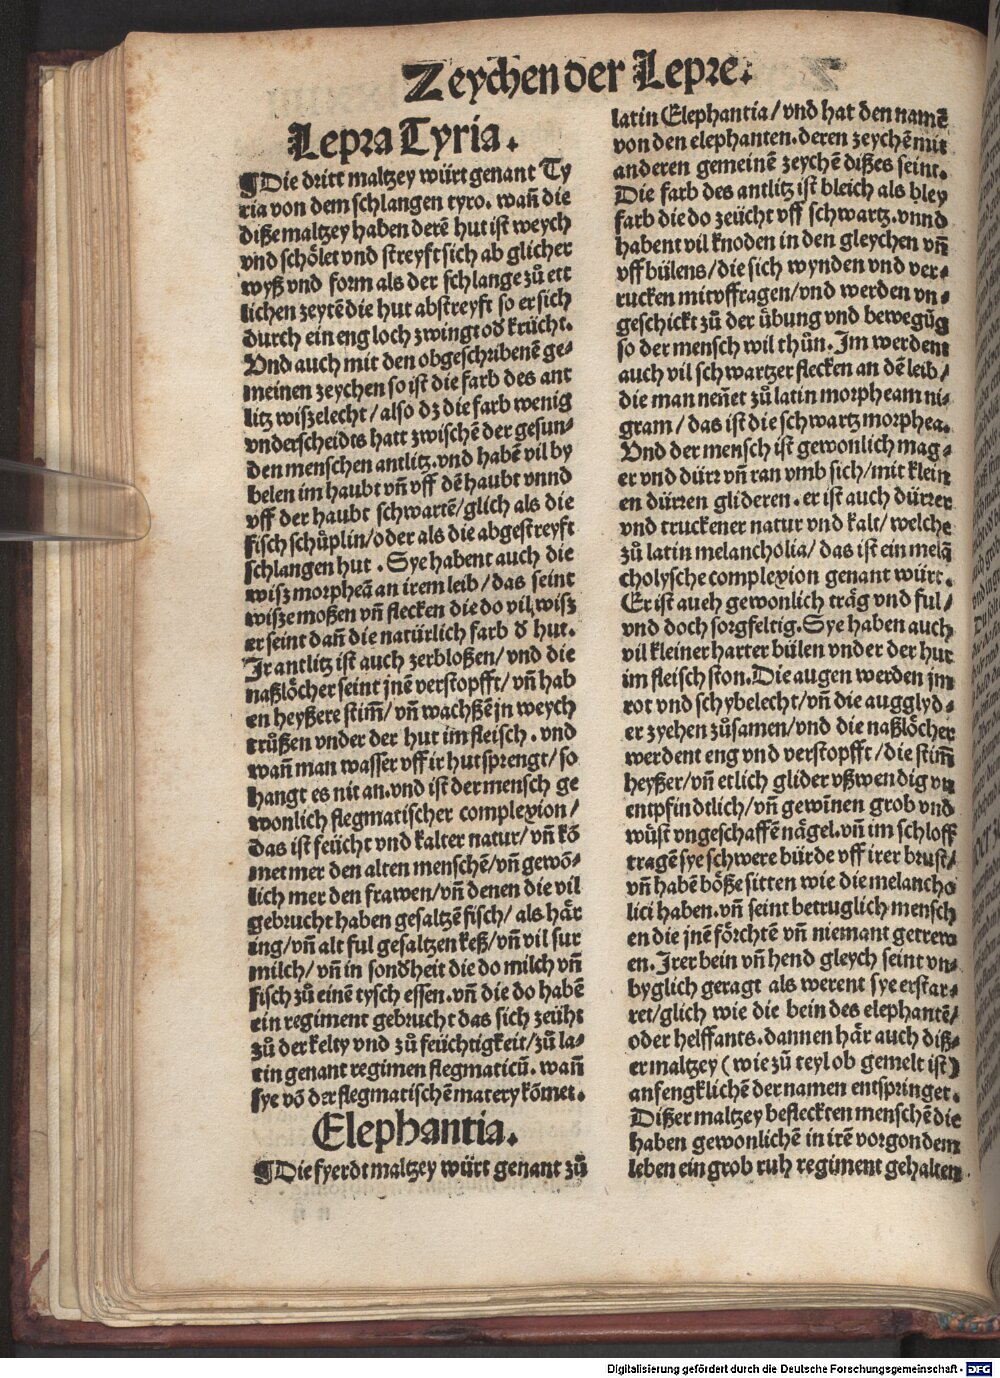 Zeychen der Lepre.
Lepra Tyria.
¶Die dritt maltzey würt genant Ty
ria von dem schlangen tyro. wañ die
diße maltzey haben derē hut ist weych
vnd schölet vnd streyft sich ab glicher
wyß vnd form als der schlange zů ett
lichen zeytē die hut abstreyft so er sich
durch ein eng loch zwingt oð krücht.
Vnd auch mit den obgeschribenē ge-
meinen zeychen so ist die farb des ant
litz wiszelecht / also dz die farb wenig
vnderscheidts hatt zwischē der gesun-
den menschen antlitz. vnd habē vil by
belen im haubt vñ vff dē haubt vnnd
vff der haubt schwartē/glich als die
fisch schüplin/oder als die abgestreyft
schlangen hut . Sye habent auch die
wisz morpheā an irem leib / das seint
wisze moßen vñ flecken die do vil wisz
er seint dañ die natürlich farb ð hut.
Ir antlitz ist auch zerbloßen/ vnd die
naßlöcher seint jnē verstopfft/ vñ hab
en heyßere stim̄/ vñ wachßē jn weych
trůßen vnder der hut im fleisch . vnd
wañ man wasser vff ir hut sprengt/ so
hangt es nit an. vnd ist der mensch ge
wonlich flegmatischer complexion /
das ist feücht vnd kalter natur/ vñ kō
met mer den alten menschē/vñ gewō-
lich mer den frawen/vñ denen die vil
gebrucht haben gesaltzē fisch/ als här
ing/vñ alt ful gesaltzen keß/vñ vil sur
milch/ vñ in sonðheit die do milch vñ
fisch zů einē tysch essen. vñ die do habē
ein regiment gebrucht das sich zeüht
zů der kelty vnd zů feüchtigkeit/zů la-
tin genant regimen flegmaticū. wañ
sye vō der flegmatischē matery kōmet.
Elephantia.
¶Die fyerdt maltzey würt genant zů
latin Elephantia/ vnd hat den namē
von den elephanten. deren zeychē mit
anderen gemeinē zeychē dißes seint.
Die farb des antlitz ist bleich als bley
farb die do zeücht vff schwartz. vnnd
habent vil knoden in den gleychen vñ
vff bülens/die sich wynden vnd ver-
rucken mit vffragen/vnd werden vn-
geschickt zů der übung vnd bewegūg
so der mensch wil thůn. Im werdent
auch vil schwartzer flecken an dē leib/
die man neñet zů latin morpheam ni-
gram / das ist die schwartz morphea.
Vnd der mensch ist gewonlich mag-
er vnd dürr vñ ran vmb sich/mit klein
en dürren glideren. er ist auch dürrer
vnd truckener natur vnd kalt/ welche
zů latin melancholia/ das ist ein melā
cholysche complexion genant würt.
Er ist aueh gewonlich träg vnd ful/
vnd doch sorgfeltig. Sye haben auch
vil kleiner harter bülen vnder der hut
im fleisch ston. Die augen werden jm
rot vnd schybelecht/vñ die augglyd-
er zyehen zůsamen/vnd die naßlöcher
werdent eng vnd verstopfft/die stim̄
heyßer/vñ etlich glider vßwendig vn
entpfindtlich/vñ gewīnen grob vnd
wůst vngeschaffē nägel. vñ im schloff
tragē sye schwere bürde vff irer brust/
vñ habē böße sitten wie die melancho
lici haben. vñ seint betruglich mensch
en die jnē förchtē vñ niemant getrew
en. Irer bein vñ hend gleych seint vn-
byglich geragt als werent sye erstar-
ret/glich wie die bein des elephantē/
oder helffants. dannen här auch diß-
er maltzey ( wie zů teyl ob gemelt ist )
anfengklichē der namen entspringet.
Dißer maltzey befleckten menschē die
haben gewonlichē in irē vorgondem
leben ein grob ruh regiment gehalten
Digitalisierung gefördert durch die Deutsche Forschungsgemeinschaft - DFG